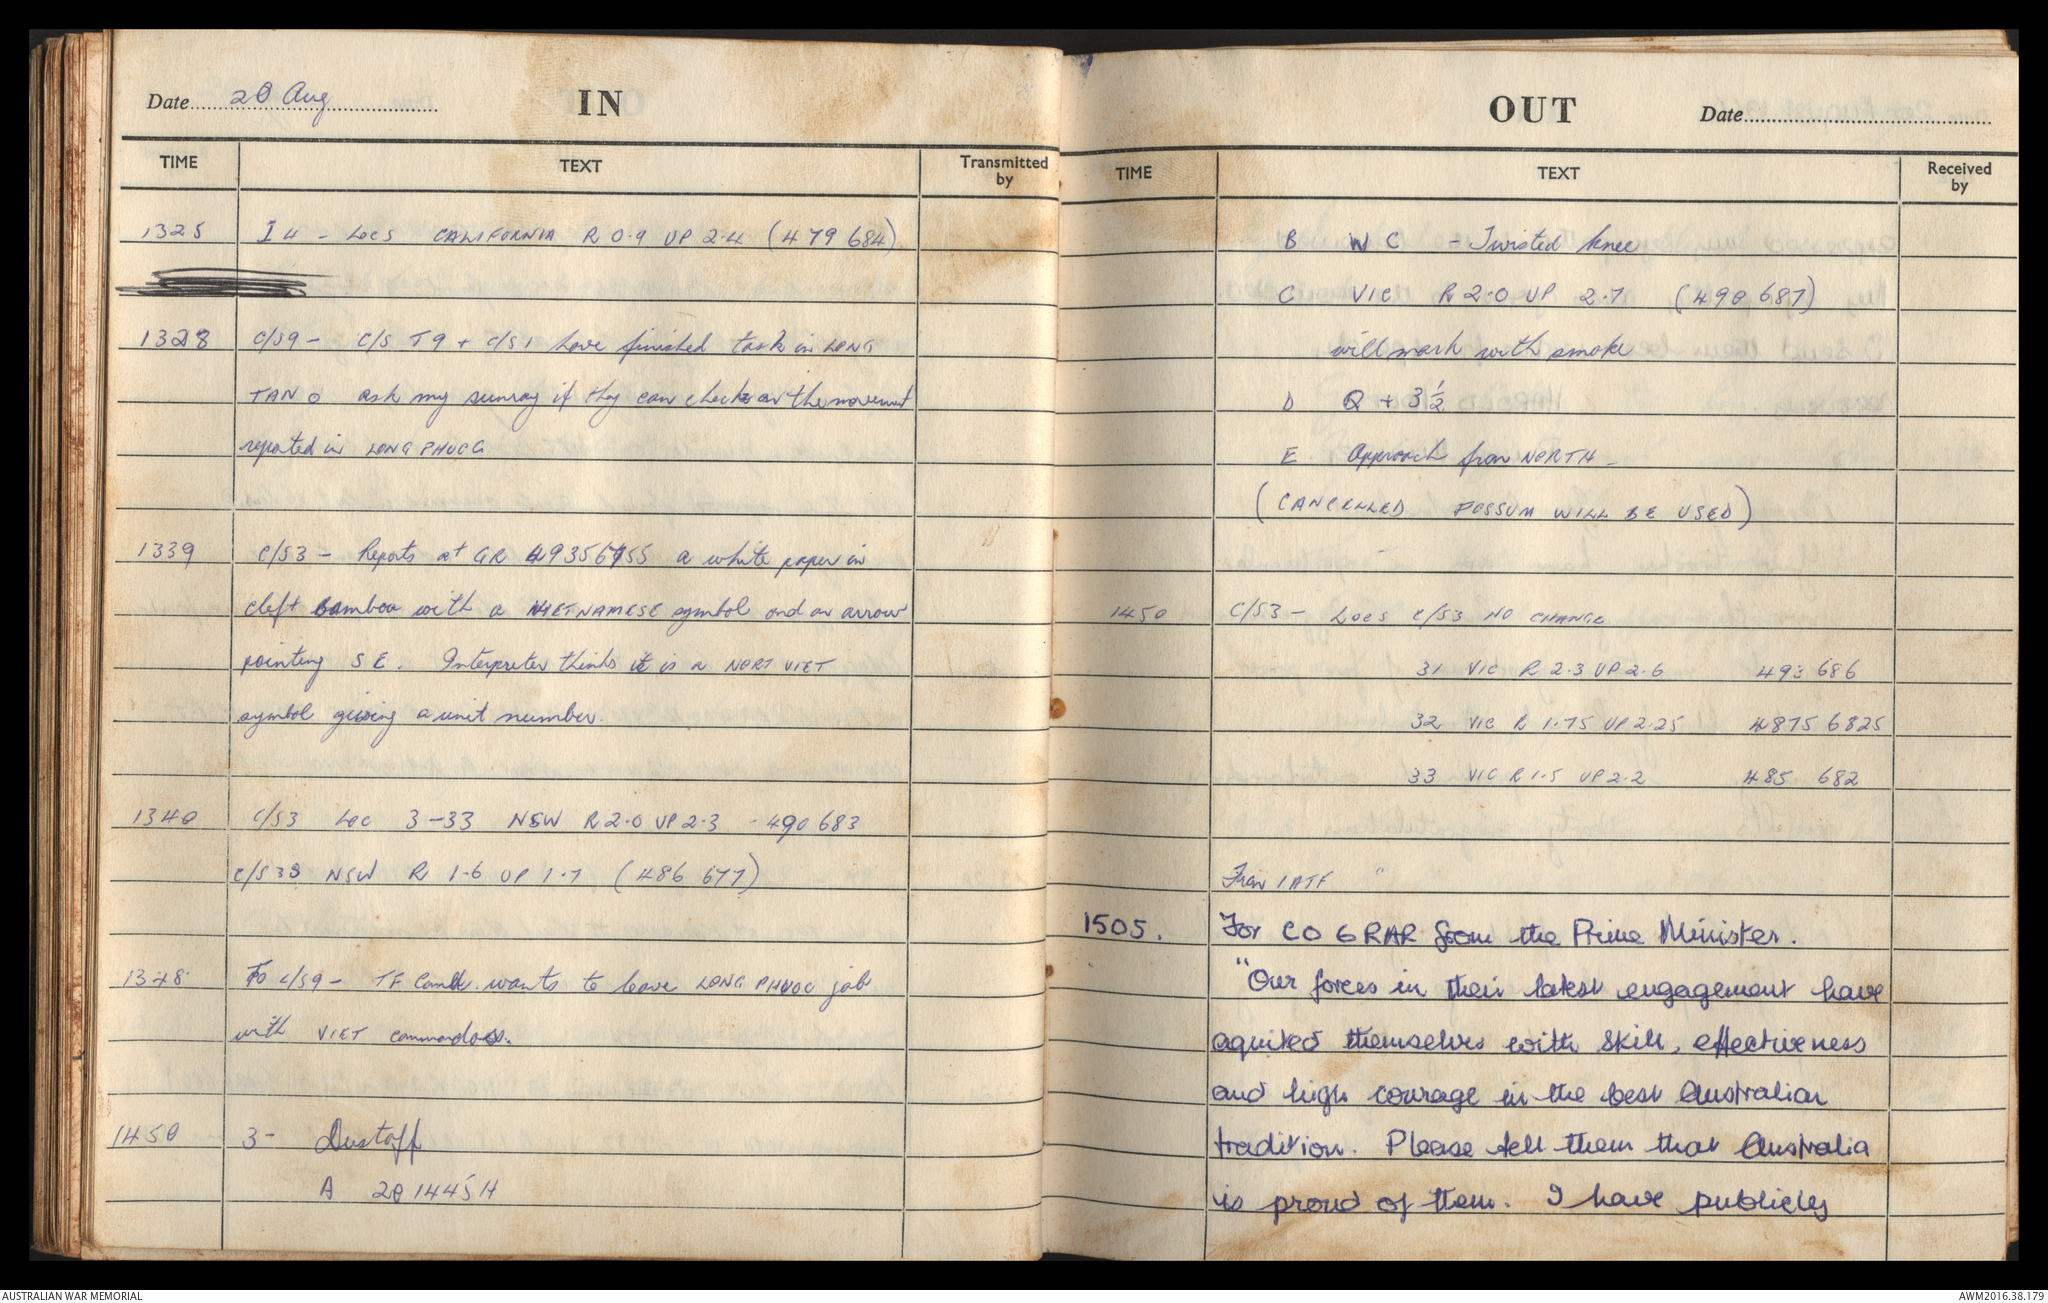 Date 20 Aug
IN
TIME TEXT Transmitted by
1325 I4 - Locs CALIFORNIA R 0.9 UP 2.4 (479 684)
1328 C/S9 - C/S T9 + C/S1 have finished task in LONG
TAN o ask my sunray if they can check on the movement
reported in LONG PHUOC
1339 C/S3 - Reports at GR 49356755 a white paper in
cleft bamboo with a VIETNAMESE symbol and an arrow
pointing S E. Interpreter thinks it is a NORT VIET
symbol giving a unit number.
1340 C/S3 Loc 3-33 NSW R 2.0 UP 2.3 - 490 683
C/S33 NSW R 1.6 UP 1.7 (486 677)
1348 To C/S9 - TF Comd. wants to leave LONG PHUOC job
with VIET commandos.
1450 3- Dustoff
A 201445H
OUT
Date
TIME TEXT Received by
B W C - Twisted knee
C VIC R 2.0 UP 2.7 (490 687)
will mark with smoke
D Q + 3½
E Approach from NORTH -
(CANCELLED POSSUM WILL BE USED)
1450 C/S3 - Locs C/S3 NO CHANGE
31 VIC R 2.3 UP 2.6 493 686
32 VIC R 1.75 UP 2.25 4875 6825
33 VIC R 1.5 UP 2.2 485 682
From 1ATF "
1505. For CO 6 RAR from the Prime Minister.
"Our forces in their latest engagement have
aquited themselves with skill, effectiveness
and high courage in the best Australian
tradition. Please tell them that Australia
is proud of them. I have publicly
AUSTRALIAN WAR MEMORIAL
AWM2016.38.179